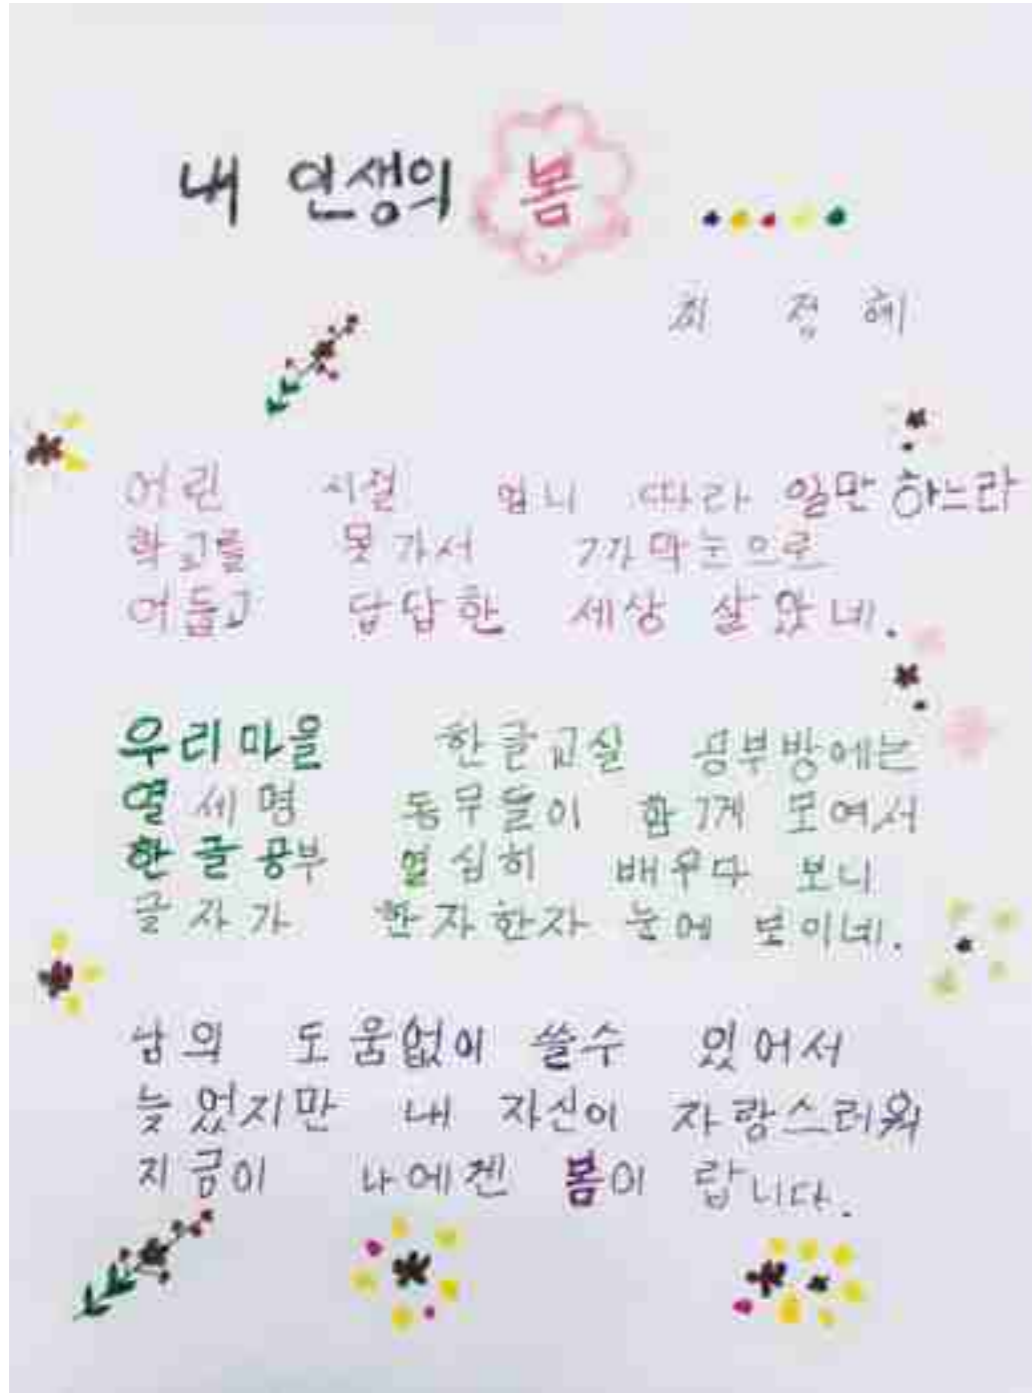 내 인생의 봄
최 점 혜
어린 시절 업니 따라 일만 하느라
학교를 못 가서 까막눈으로
어듭고 답답한 세상 살았네.
우리마을 한글교실 공부방에는
열 세 명 동무들이 함께 모여서
한글공부 열심히 배우다 보니
글자가 한자한자 눈에 보이네.
남의 도움없이 쓸수 있어서
늦었지만 내 자신이 자랑스러워
지금이 나에겐 봄이 랍니다.